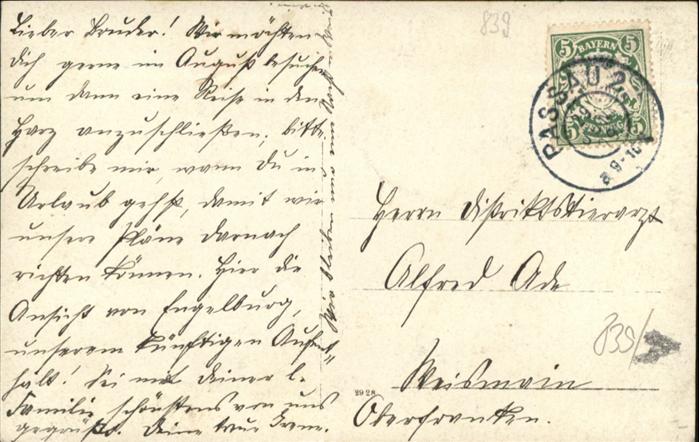 Lieber Bruder! Wir möchten
Dich gerne im August besuchen
um dann eine Reise in den
Harz anzuschließen, bitte
schreibe mir, wann Du in
Urlaub gehst, damit wir
unsere Pläne darnach
richten können. Hier die
Ansicht von Engelburg,
unserem künftigen Aufent=
halt! Sei mit Deiner l.
Familie schönstens von uns
gegrüßt. Deine treue
Wir bleiben nur
839
5 BAYERN 5
PASSAU 2
9-10
Herrn Distriktstierarzt
Alfred Ade
Weismain
Oberfranken.
839/
2928